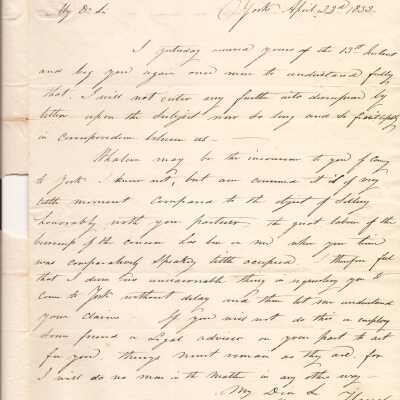 My Dr Sr York April 23rd 1833.
I yesterday received yours of the 13th Instant
and beg you again once more to understand fully
that I will not enter any further into discussion by
letter upon the subject now so long and so
in correspondence between us —
Whatever may be the inconvenience to you of coming
to York I know not, but am convinced it is of very
little moment compared to the object of settling
honorably with your partner, the great labour of the
burthen of the concern has been on me, when your time
was comparatively speaking little occupied. I therefore feel
that I deem no unreasonable thing in requesting you to
come to York without delay and then let me understand
your claims. If you will not do this or employ
some friend or Legal adviser on your part to act
for you things must remain as they are, for
I will do no more in the matter in any other way
My Dear Sr